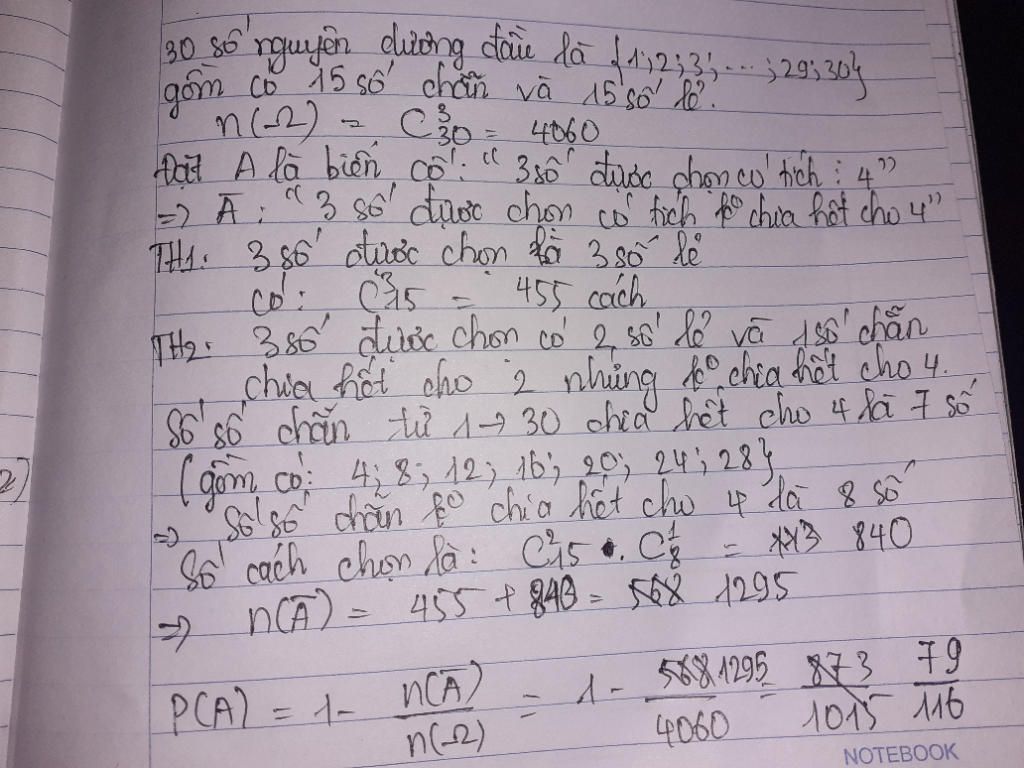 30 số nguyên dương đầu là {1; 2; 3; ...; 29; 30}
gồm có 15 số chẵn và 15 số lẻ.
n(Ω) = C³₃₀ = 4060
Đặt A là biến cố: "3 số được chọn có tích ⋮ 4"
=> Ā: "3 số được chọn có tích k⁰ chia hết cho 4"
TH1: 3 số được chọn là 3 số lẻ
có: C³₁₅ = 455 cách
TH2: 3 số được chọn có 2 số lẻ và 1 số chẵn
chia hết cho 2 nhưng k⁰ chia hết cho 4.
Số số chẵn từ 1 → 30 chia hết cho 4 là 7 số
(gồm có: 4; 8; 12; 16; 20; 24; 28}
2)
=> Số số chẵn k⁰ chia hết cho 4 là 8 số
Số cách chọn là: C²₁₅ . C¹₈ = 840
=> n(Ā) = 455 + 840 = 568 1295
P(A) = 1 - n(Ā)/n(Ω) = 1 - 568 1295/4060 = 873/1015 79/116
NOTEBOOK